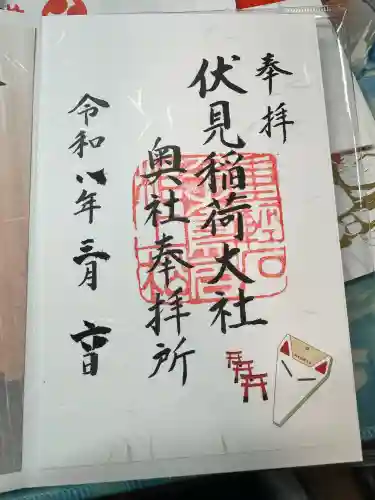 奉拝
伏見稲荷大社
奥社奉拝所
令和八年三月六日